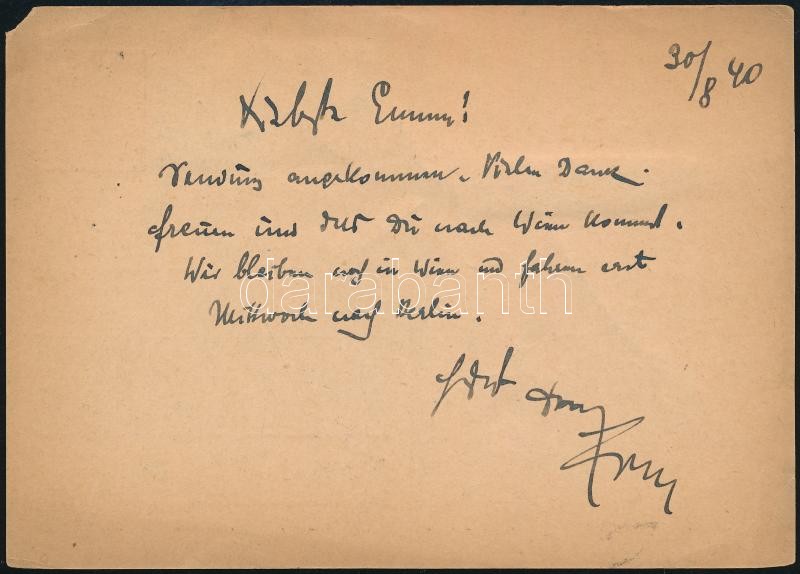 30/8 40
Liebste Emmy!
angekommen. Vielen Dank.
freuen uns dass Du nach Wien kommst.
Wir bleiben noch in Wien und fahren erst
Mittwoch nach Berlin.
darabanth
Dein